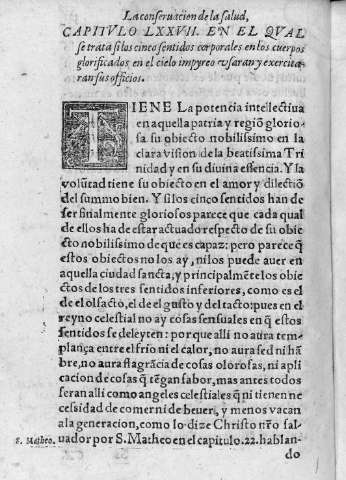 La conseruacion de la salud,
CAPITVLO LXXVII. EN EL QVAL
se trata si los cinco sentidos corporales en los cuerpos
glorificados en el cielo impyreo vsaran y exercita
ran sus officios.
TIENE La potencia intellectiua
en aquella patria y regiõ glorio-
sa su obiecto nobilissimo en la
clara vision de la beatissima Tri
nidad y en su diuina essencia. Y la
volũtad tiene su obiecto en el amor y dilectiõ
del summo bien. Y si los cinco sentidos han de
ser finalmente gloriosos parece que cada qual
de ellos ha de estar actuado respecto de su obie
cto nobilissimo de que es capaz: pero parece q̃
estos obiectos no los ay, ni los puede auer en
aquella ciudad sancta, y principalmẽte los obie
ctos de los tres sentidos inferiores, como es el
de el olfacto, el de el gusto y del tacto: pues en el
reyno celestial no ay cosas sensuales en q̃ estos
sentidos se deleyten: por que alli no aura tem-
plança entre el frio ni el calor, no aura sed ni hã
bre, no aura flagrãcia de cosas olorosas, ni apli
cacion de cosas q̃ tẽgan sabor, mas antes todos
seran alli como angeles celestiales q̃ ni tienen ne
cessidad de comer ni de beuer, y menos vacan
a la generacion, como lo dize Christo nr̃o sal-
S. Matheo. uador por S. Matheo en el capitulo. 22. hablan-
do